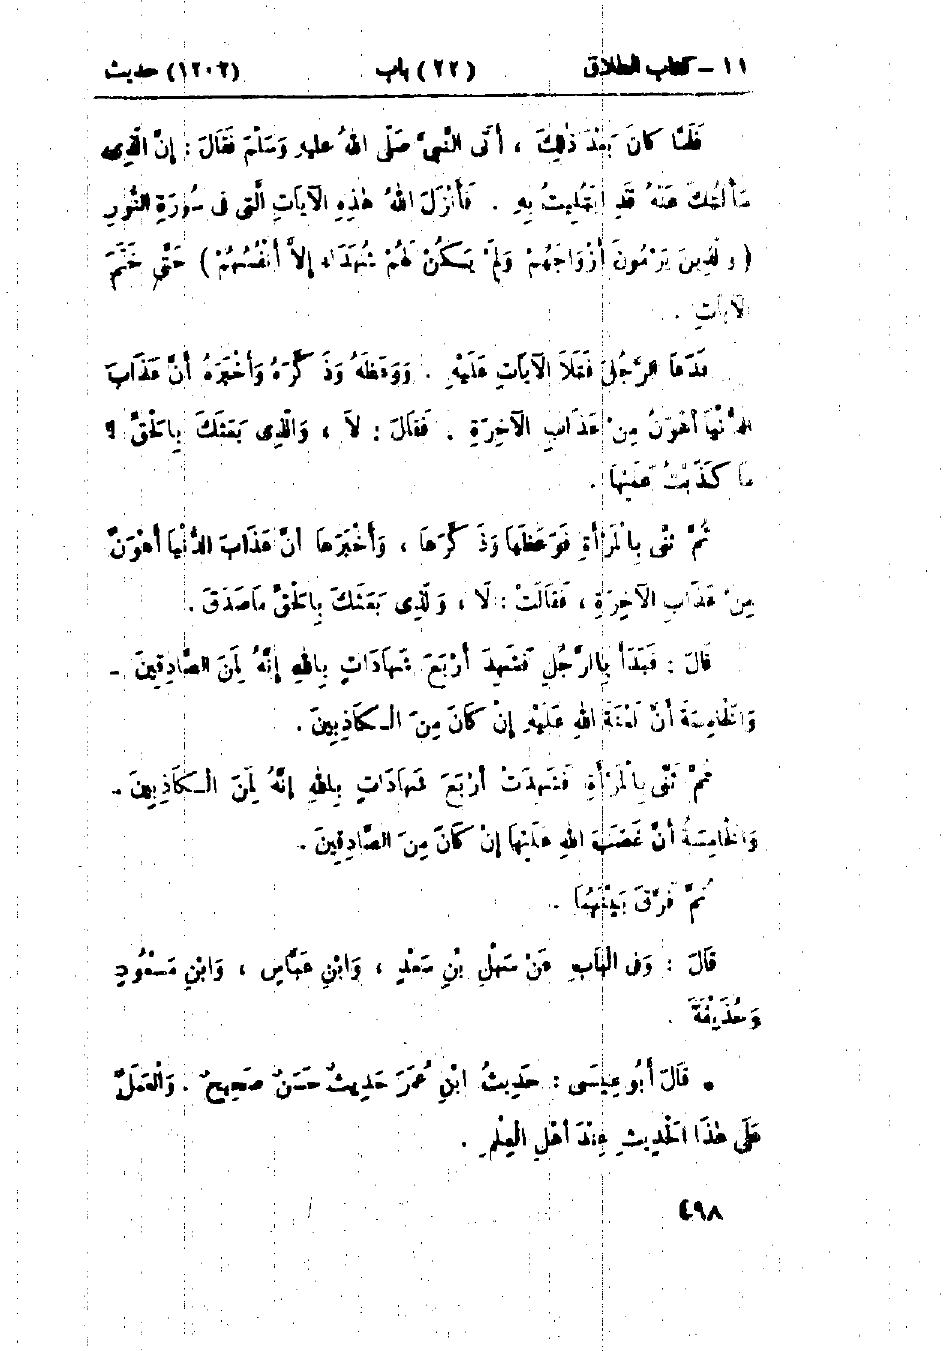 ١١ - كتاب الطلاق (٢٢) باب (١٢٠٢) حديث
فَلَمَّا كَانَ بَعْدَ ذٰلِكَ ، أَتَى النَّبِيَّ صَلَّى اللهُ عليهِ وَسَلَّمَ فَقَالَ : إِنَّ الَّذِى
سَأَلْتُكَ عَنْهُ قَدِ ابْتُلِيتُ بِهِ . فَأَنْزَلَ اللهُ هٰذِهِ الآيَاتِ الَّتِى فى سُورَةِ النُّورِ
( وَالَّذِينَ يَرْمُونَ أَزْوَاجَهُمْ وَلَمْ يَكُنْ لَهُمْ شُهَدَاء إِلاَّ أَنْفُسُهُمْ ) حَتَّى خَتَمَ
الآيَاتِ .
فَدَعَا الرَّجُلَ فَتَلاَ الآيَاتِ عَلَيْهِ . وَوَعَظَهُ وَذَكَّرَهُ وَأَخْبَرَهُ أَنَّ عَذَابَ
الدُّنْيَا أَهْوَنُ مِنْ عَذَابِ الآخِرَةِ . فَقَالَ : لاَ ، وَالَّذِى بَعَثَكَ بِالْحَقِّ !
مَا كَذَبْتُ عَلَيْهَا .
ثُمَّ ثَنَّى بِالْمَرْأَةِ فَوَعَظَهَا وَذَكَّرَهَا ، وَأَخْبَرَهَا أَنَّ عَذَابَ الدُّنْيَا أَهْوَنُ
مِنْ عَذَابِ الآخِرَةِ ، فَقَالَتْ : لَا ، وَالَّذِى بَعَثَكَ بِالْحَقِّ مَا صَدَقَ .
قَالَ : فَبَدَأَ بِالرَّجُلِ فَشَهِدَ أَرْبَعَ شَهَادَاتٍ بِاللهِ إِنَّهُ لَمِنَ الصَّادِقِينَ .
وَالْخَامِسَةَ أَنَّ لَعْنَةَ اللهِ عَلَيْهِ إِنْ كَانَ مِنَ الْـكَاذِبِينَ .
ثُمَّ ثَنَّى بِالْمَرْأَةِ فَشَهِدَتْ أَرْبَعَ شَهَادَاتٍ بِاللهِ إِنَّهُ لَمِنَ الْـكَاذِبِينَ .
وَالْخَامِسَةُ أَنَّ غَضَبَ اللهِ عَلَيْهَا إِنْ كَانَ مِنَ الصَّادِقِينَ .
ثُمَّ فَرَّقَ بَيْنَهُمَا .
قَالَ : وَفى الْبَابِ عَنْ سَهْلِ بْنِ سَعْدٍ ، وَابْنِ عَبَّاسٍ ، وَابْنِ مَسْعُودٍ
وَحُذَيْفَةَ .
• قَالَ أَبُو عِيسَى : حَدِيثُ ابْنِ عُمَرَ حَدِيثٌ حَسَنٌ صَحِيحٌ . وَالْعَمَلُ
عَلَى هٰذَا الْحَدِيثِ عِنْدَ أَهْلِ الْعِلْمِ .
٤٩٨